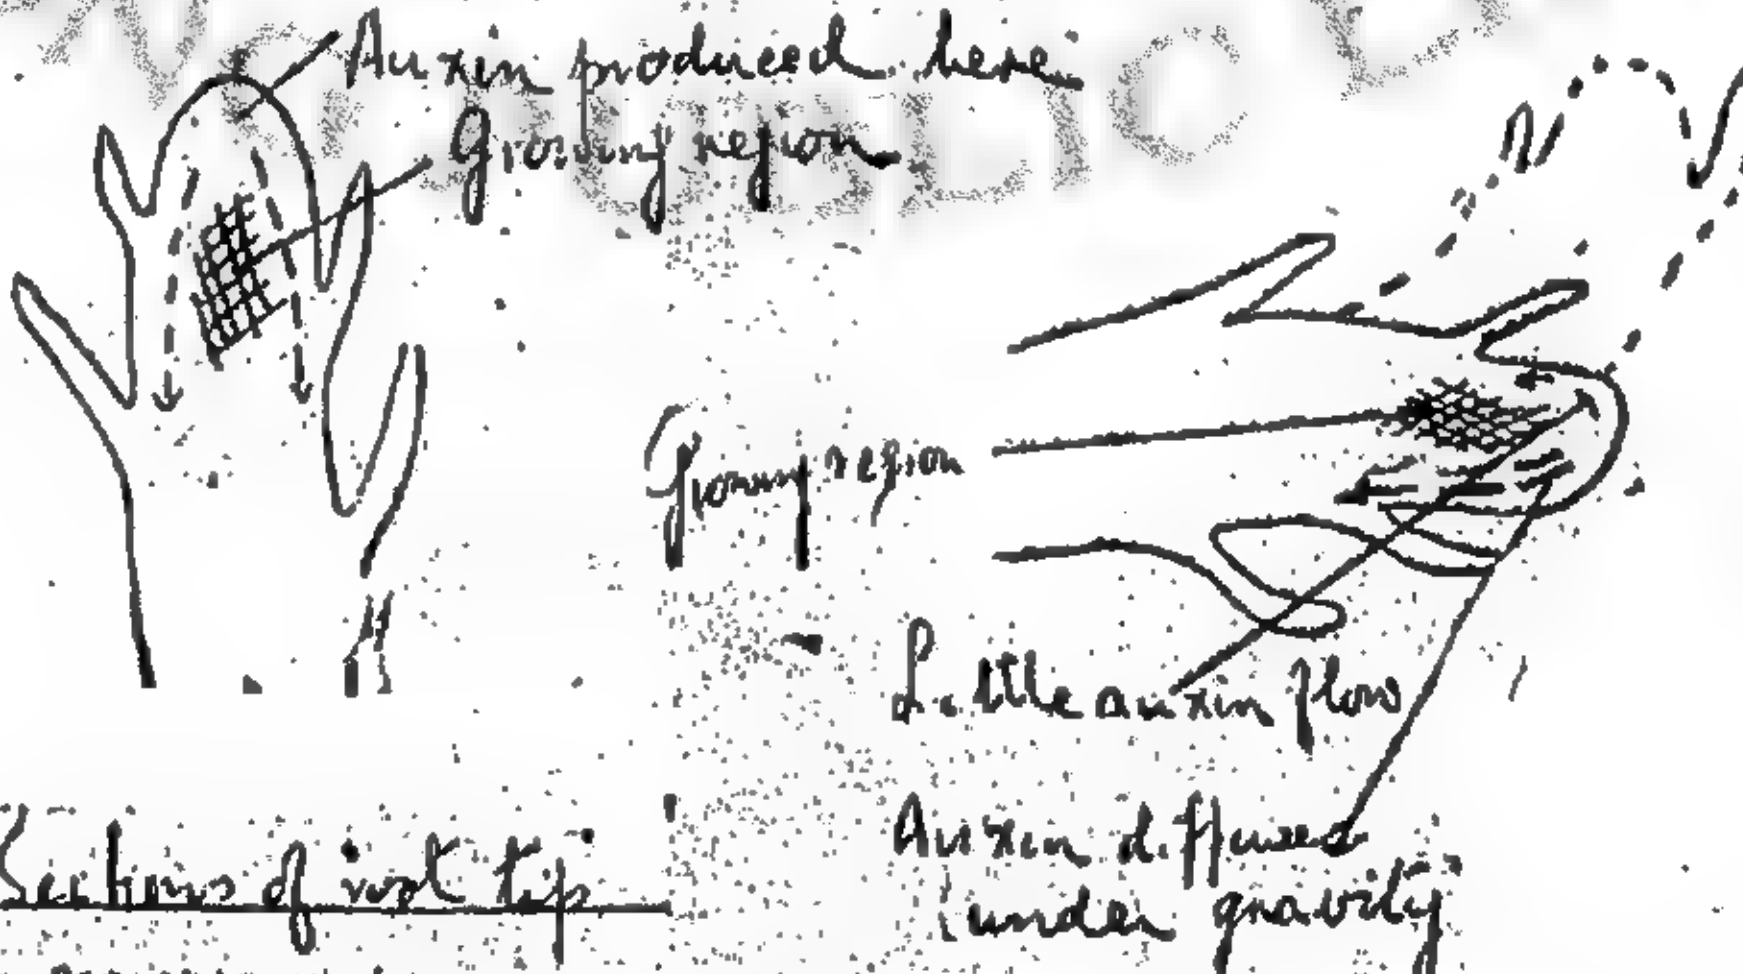 Auxin produced here
Growing region
Growing region
Little auxin flow
Auxin diffused
under gravity
Sections of root tip